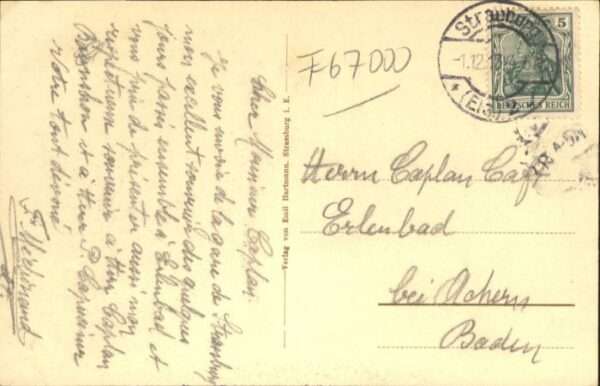 Cher Monsieur Caplan.
Je vous envoie de la gare de Strasbourg
mon excellent souvenir des quelques
jours passés ensemble à Erlenbad et
vous prie de présenter aussi mon
respectueux souvenir à Herr Caplan
et à Herr P. Capuciner
Votre tout dévoué
Verlag von Emil Hartmann, Strassburg i. E.
F67000
Strassburg
-1.12.13
* (Els.)
5
DEUTSCHES REICH
Herrn Caplan
Erlenbad
bei Achern
Baden